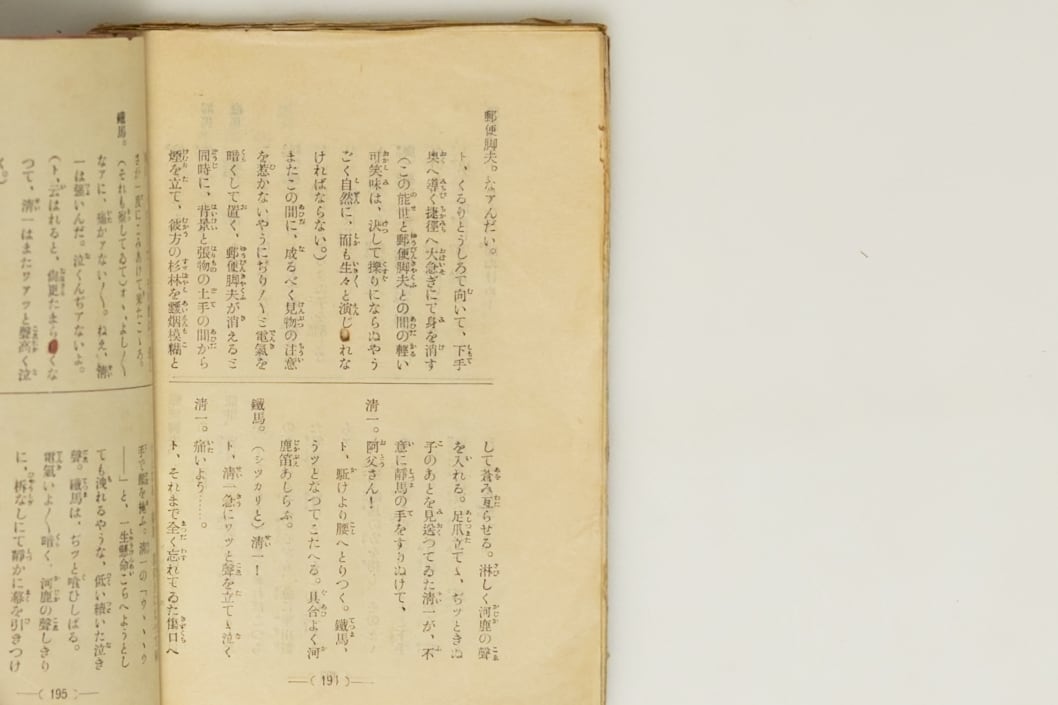 郵便脚夫。なァんだい。
ト、くるりとうしろで向いて、下手
奥へ導く捷徑へ大急ぎにて身を消す
(この能世と郵便脚夫との間の輕い
可笑味は、決して擽りにならぬやう
ごく自然に、而も生々と演じ れな
ければならない。)
またこの間に、成るべく見物の注意
を惹かないやうにぢり〳〵ミ電氣を
暗くして置く、郵便脚夫が消えるミ
同時に、背景と張物の土手の間から
煙を立て、彼方の杉林を靉烟模糊と
して蒼み亙らせる。淋しく河鹿の聲
を入れる。足爪立てゝ、ぢッときぬ
子のあとを見送つてゐた淸一が、不
意に靜馬の手をすりぬけて、
淸一。阿父さん!
ト、駈けより腰へとりつく。鐵馬、
うッとなつてこたへる。具合よく河
鹿笛あしらふ。
鐵馬。(シッカリと)淸一!
ト、淸一急にワッと聲を立てゝ泣く
淸一。痛いよう……。
ト、それまで全く忘れてゐた傷口へ
—( 191 )—
鐵馬。(それも してゐて)オヽ、よし〳〵
なァに、痛かァない〳〵。ねえ、淸
一は强いんだ。泣くんぢァないよ。
(ト、云はれると、尙更たまら くな
つて、淸一はまたワァッと聲高く泣
く。)
手で を掩ふ。淸一の「ウヽヽヽウ
——」と、一生懸命こらへようとし
ても洩れるやうな、低い續いた泣き
聲。鐵馬は、ぢッと喰ひしばる。
電氣いよ〳〵暗く、河鹿の聲しきり
に、柝なしにて靜かに幕を引きつけ
—( 195 )—